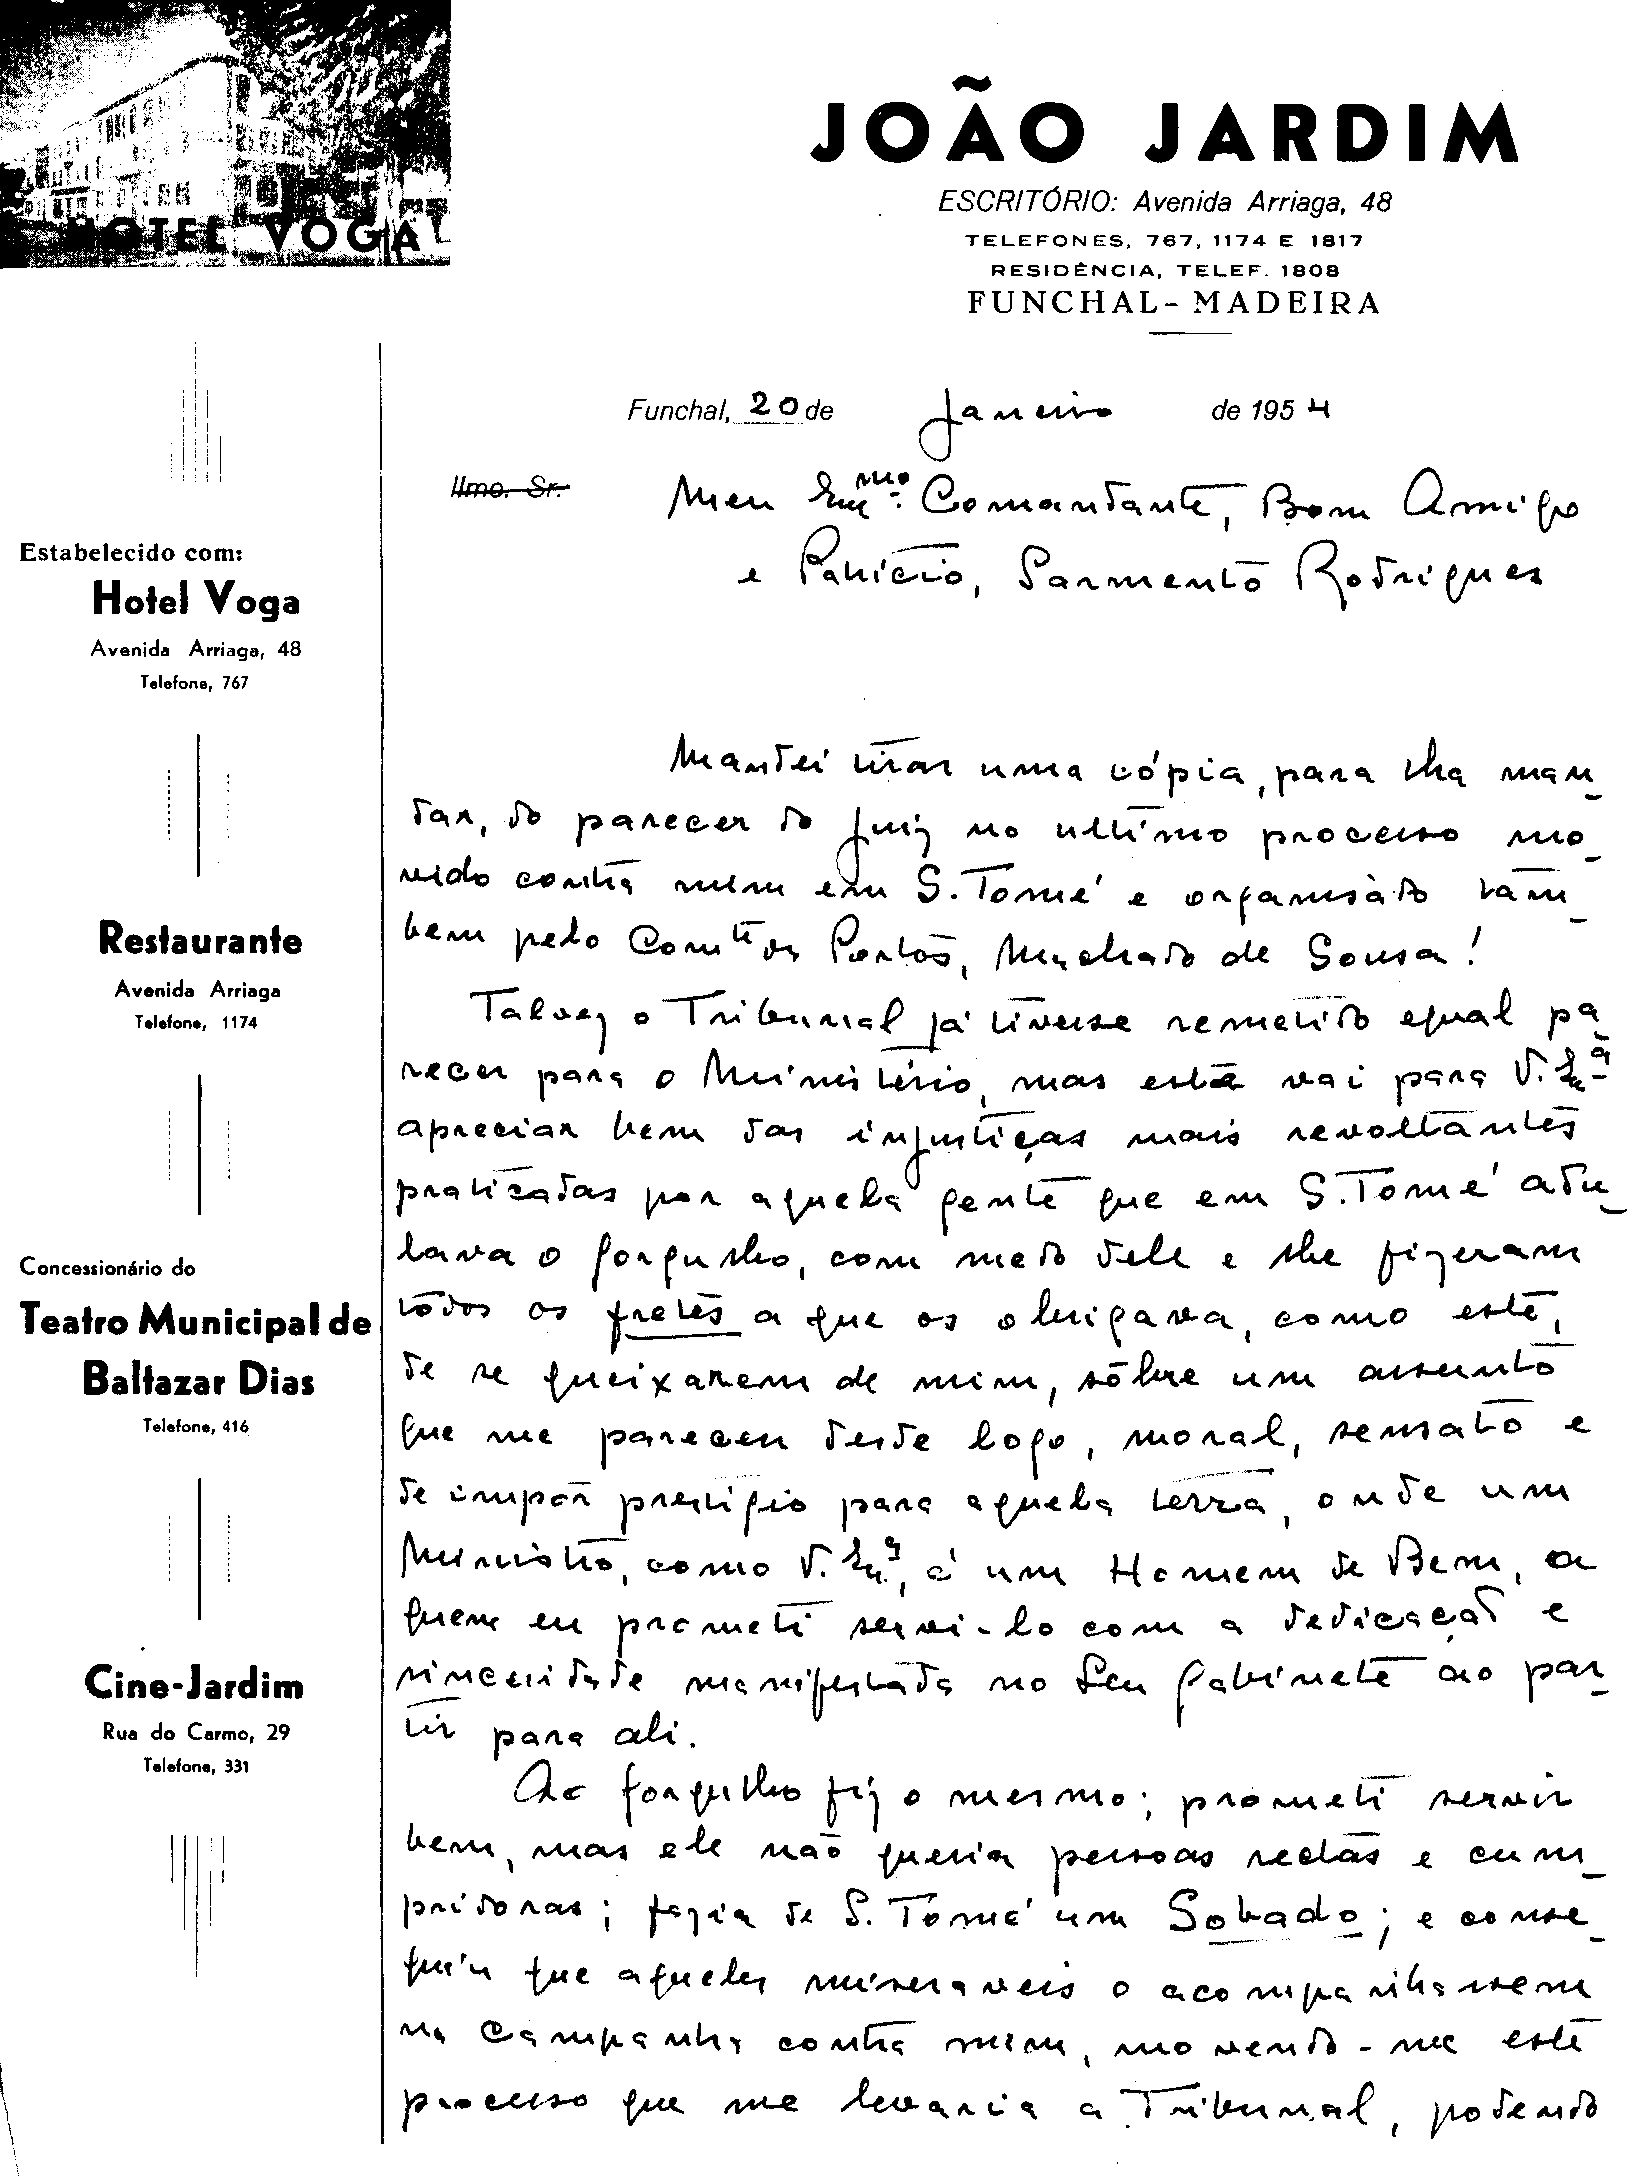 HOTEL VOGA
JOÃO JARDIM
ESCRITÓRIO: Avenida Arriaga, 48
TELEFONES, 767, 1174 E 1817
RESIDÊNCIA, TELEF. 1808
FUNCHAL - MADEIRA
Funchal, 20 de Janeiro de 1954
Ilmo. Sr.
Meu Exmº. Comandante, Bom Amigo
e Patricio, Sarmento Rodrigues
Estabelecido com:
Hotel Voga
Avenida Arriaga, 48
Telefone, 767
Restaurante
Avenida Arriaga
Telefone, 1174
Concessionário do
Teatro Municipal de
Baltazar Dias
Telefone, 416
Cine-Jardim
Rua do Carmo, 29
Telefone, 331
Mandei tirar uma cópia, para lha man-
dar, do parecer do Juiz no ultimo processo mo-
vido contra mim em S. Tomé e organisado tam-
bem pelo Comte dos Portos, Machado de Sousa!
Talvez o Tribunal já tivesse remetido egual pa-
recer para o Ministério, mas este vai para V. Exª
apreciar bem das injustiças mais revoltantes
praticadas por aquela gente que em S. Tomé adu-
lava o gorgulho, com medo dele e lhe fizeram
todos os fretes a que os obrigava, como este,
de se queixarem de mim, sôbre um assunto
que me pareceu desde logo, moral, sensato e
de impôr prestigio para aquela terra, onde um
Ministro, como V. Exª, é um Homem de Bem, a
quem eu prometi servi-lo com a dedicação e
sinceridade manifestada no Seu gabinete ao par-
tir para ali.
Ao gorgulho fiz o mesmo; prometi servir
bem, mas ele não queria pessoas rectas e cum-
pridoras; fazia de S. Tomé um Sobado; e conse-
guiu que aqueles miseraveis o acompanhassem
na campanha contra mim, movendo-me este
processo que me levaria a Tribunal, podendo